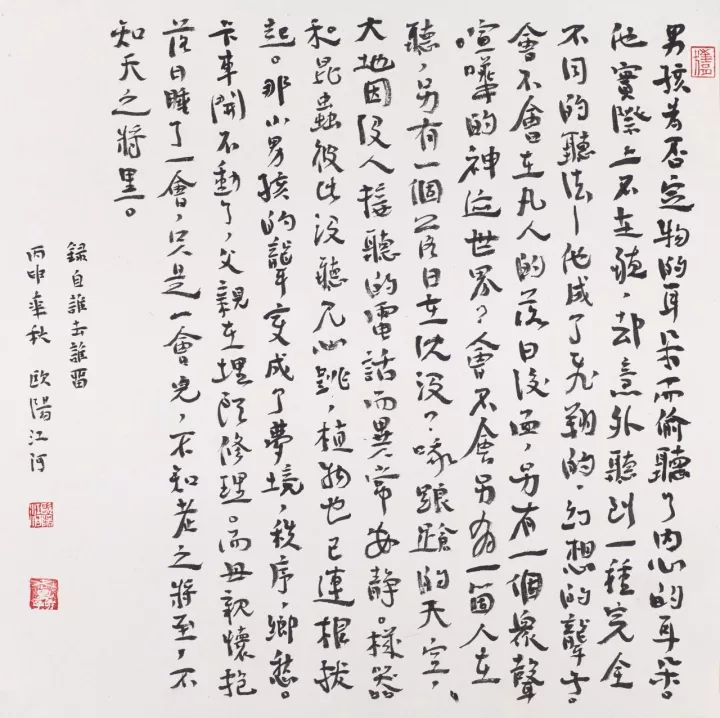 男孩为否定物的耳朵而偷聽了内心的耳朵。
他實際上不在聽,却意外聽到一種完全
不同的聽法—他成了飞翔的,幻想的聾子。
會不會在凡人的落日後面,另有一個衆聲
喧嘩的神迹世界?會不會另有一箇人在
聽,另有一個落日在沈没?哦踉蹌的天空,
大地因没人接聽的電話而異常安静。機器
和昆蟲彼此没聽見心跳,植物也已連根拔
起。那小男孩的聾变成了夢境,秩序,鄉愁。
卡車開不動了,父親在埋頭修理。而母親懷抱
落日睡了一會,只是一會兒,不知老之將至,不
知天之將黑。
錄自誰去誰畱
丙申年秋 歐陽江河